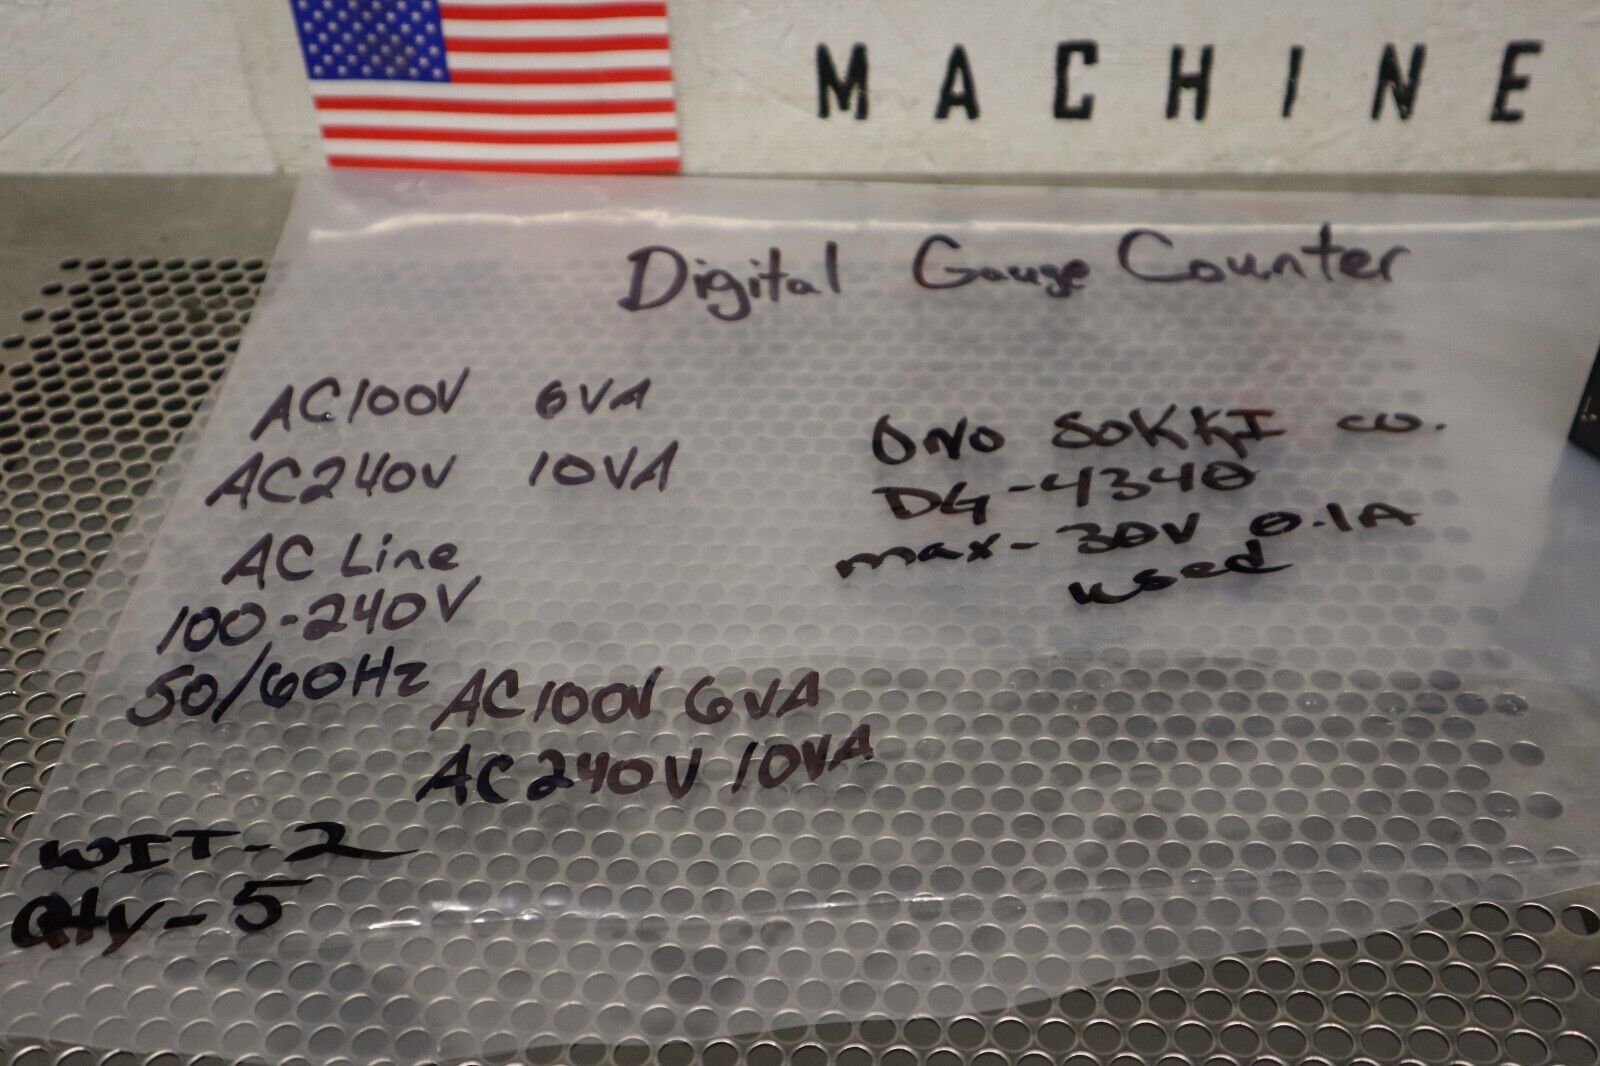 MACHINE
Digital Gauge Counter
AC100V 6VA
AC240V 10VA
AC Line
100-240V
50/60Hz
ONO SOKKI CO.
DG-4340
max-30V 0.1A
used
AC100V 6VA
AC240V 10VA
WIT-2
Qty-5